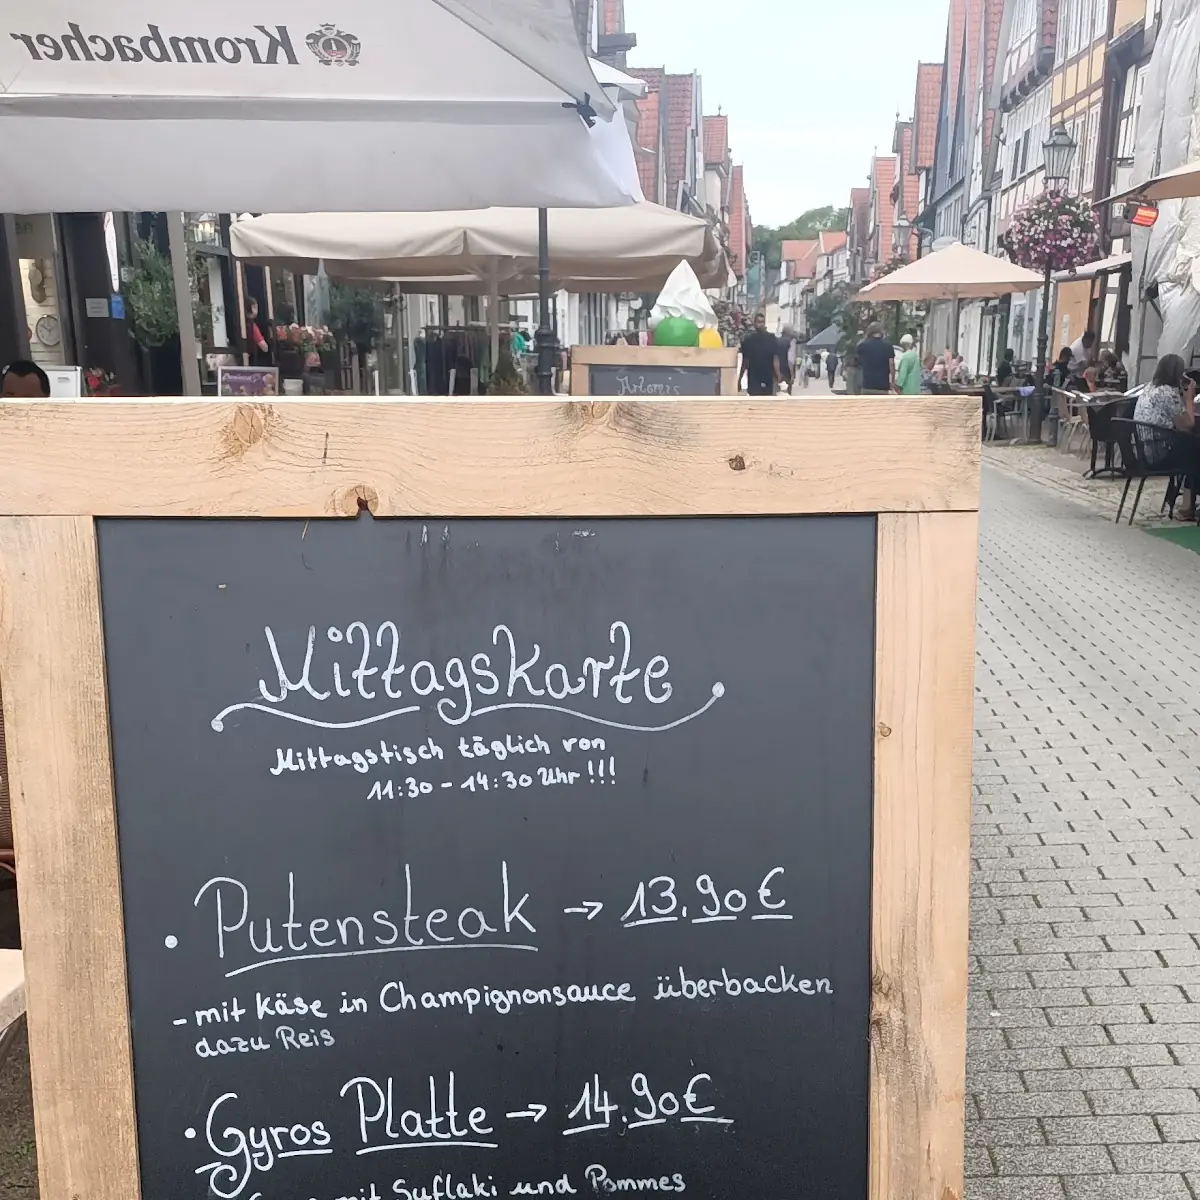 Krombacher
Mittagskarte
Mittagstisch täglich von
11:30 - 14:30 Uhr !!!
• Putensteak → 13.90€
- mit Käse in Champignonsauce überbacken
dazu Reis
• Gyros Platte → 14.90€
mit Suflaki und Pommes